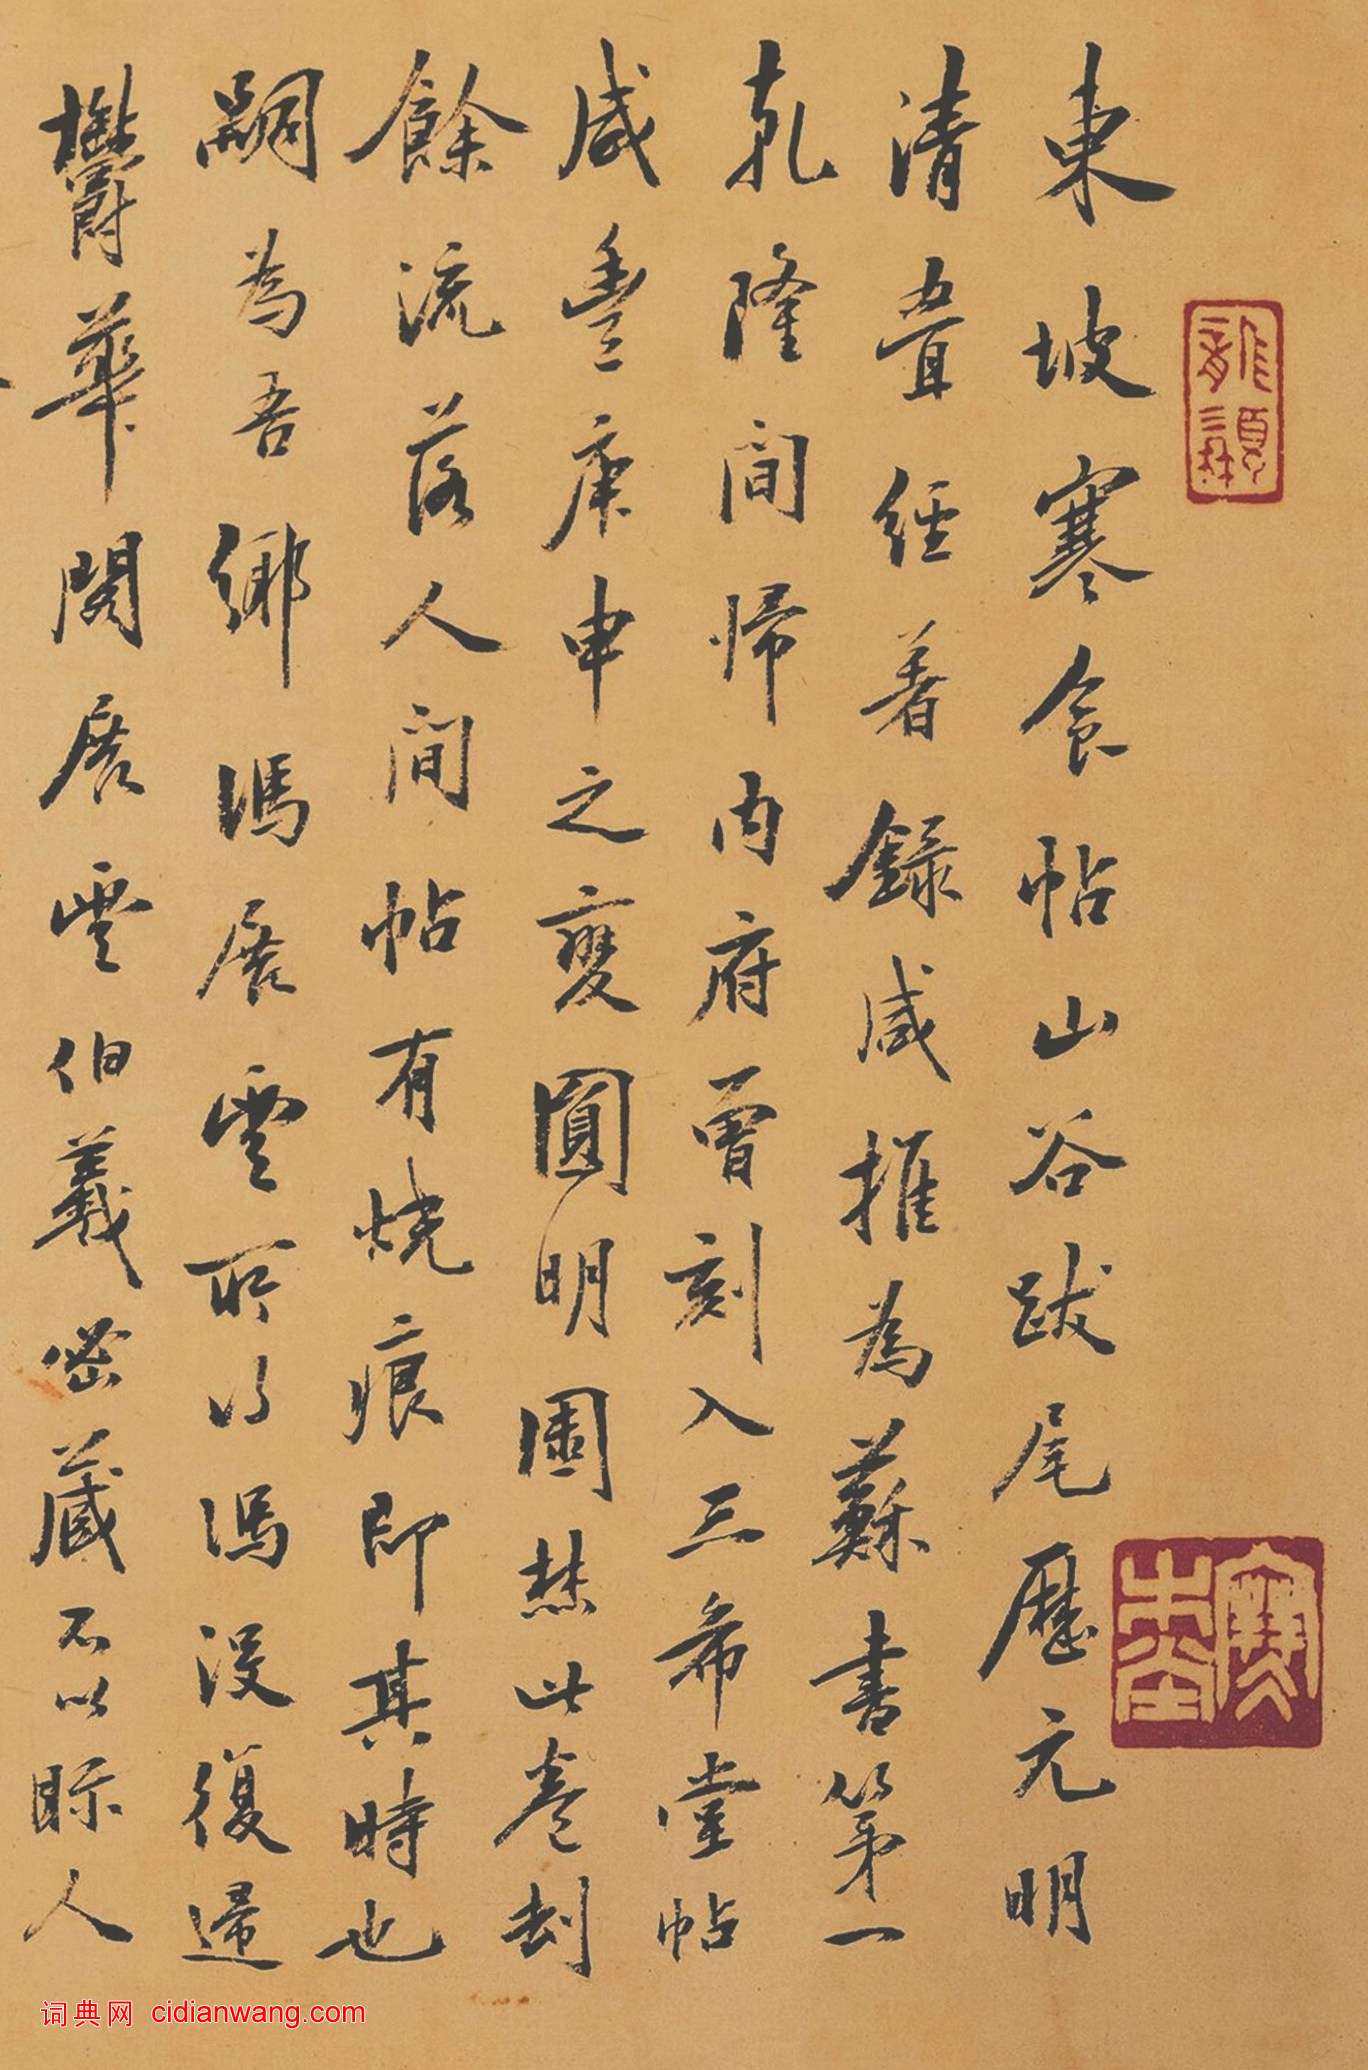 東坡寒食帖山谷跋尾歷元明
清疊經著錄咸推為蘇書第一
乾隆間歸內府曾刻入三希堂帖
咸豐庚申之變圓明園焚此卷劫
餘流落人間帖有燒痕即其時也
嗣為吾鄉馮展雲所得馮沒復歸
鬱華閣展雲伯羲密藏不以眎人
寒木堂
词典网 cidianwang.com